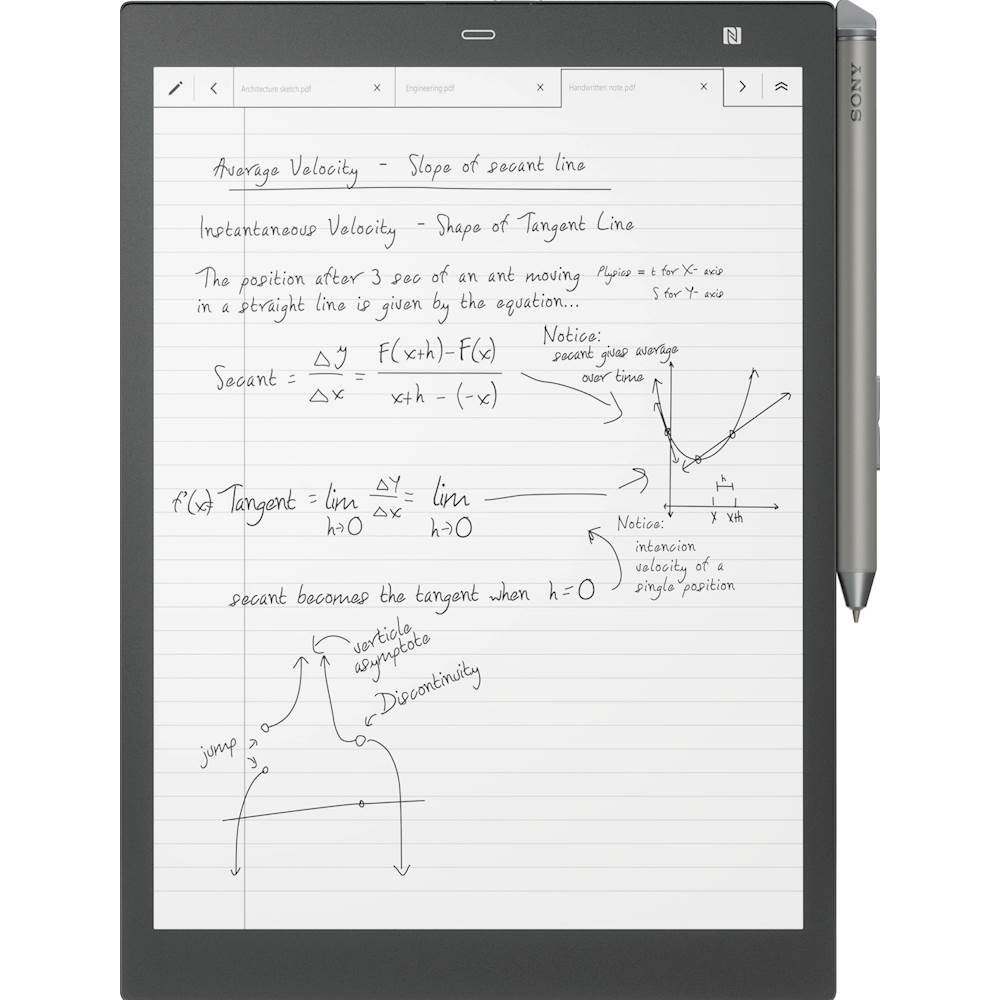 SONY
Architecture sketch.pdf X
Engineering.pdf X
Handwritten note.pdf X
Average Velocity - Slope of secant line
Instantaneous Velocity - Shape of Tangent Line
The position after 3 sec of an ant moving
in a straight line is given by the equation...
Physics = t for X- axis
S for Y- axis
Secant = Δy/Δx = F(x+h)-F(x)/x+h-(-x)
Notice:
secant gives average
over time
h
x x+h
f'(x) Tangent = lim h→0 ΔY/Δx = lim h→0
Notice:
intencion
velocity of a
single position
secant becomes the tangent when h=0
verticle
asymptote
Discontinuity
jump